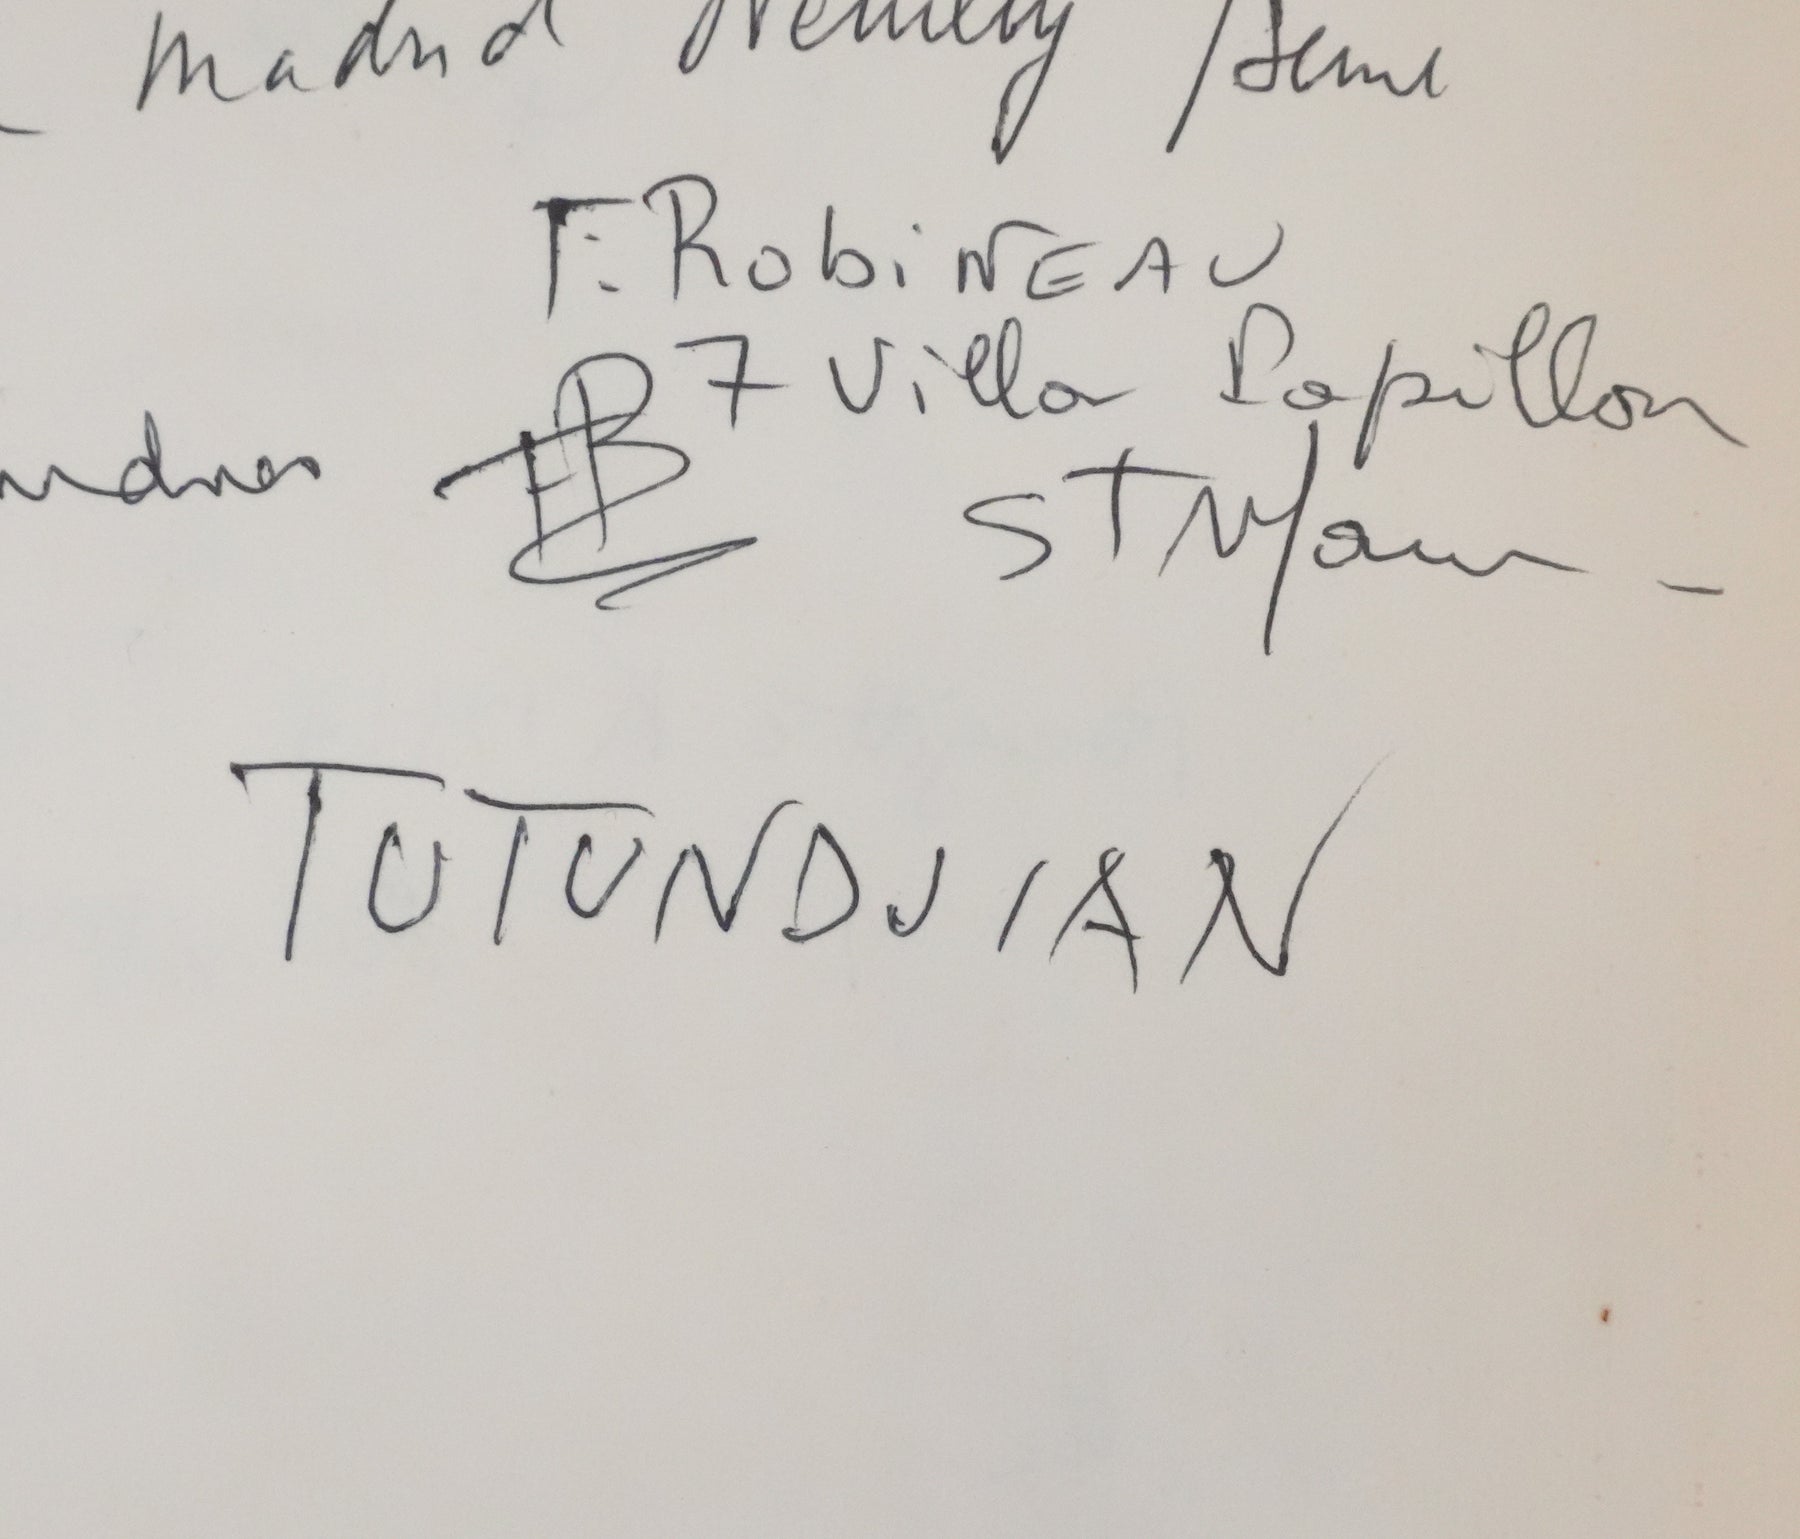 madrid Neuilly / Seine
F. RobiNEAU
7 Villa Papillon
ST Maur -
TUTUNDJIAN